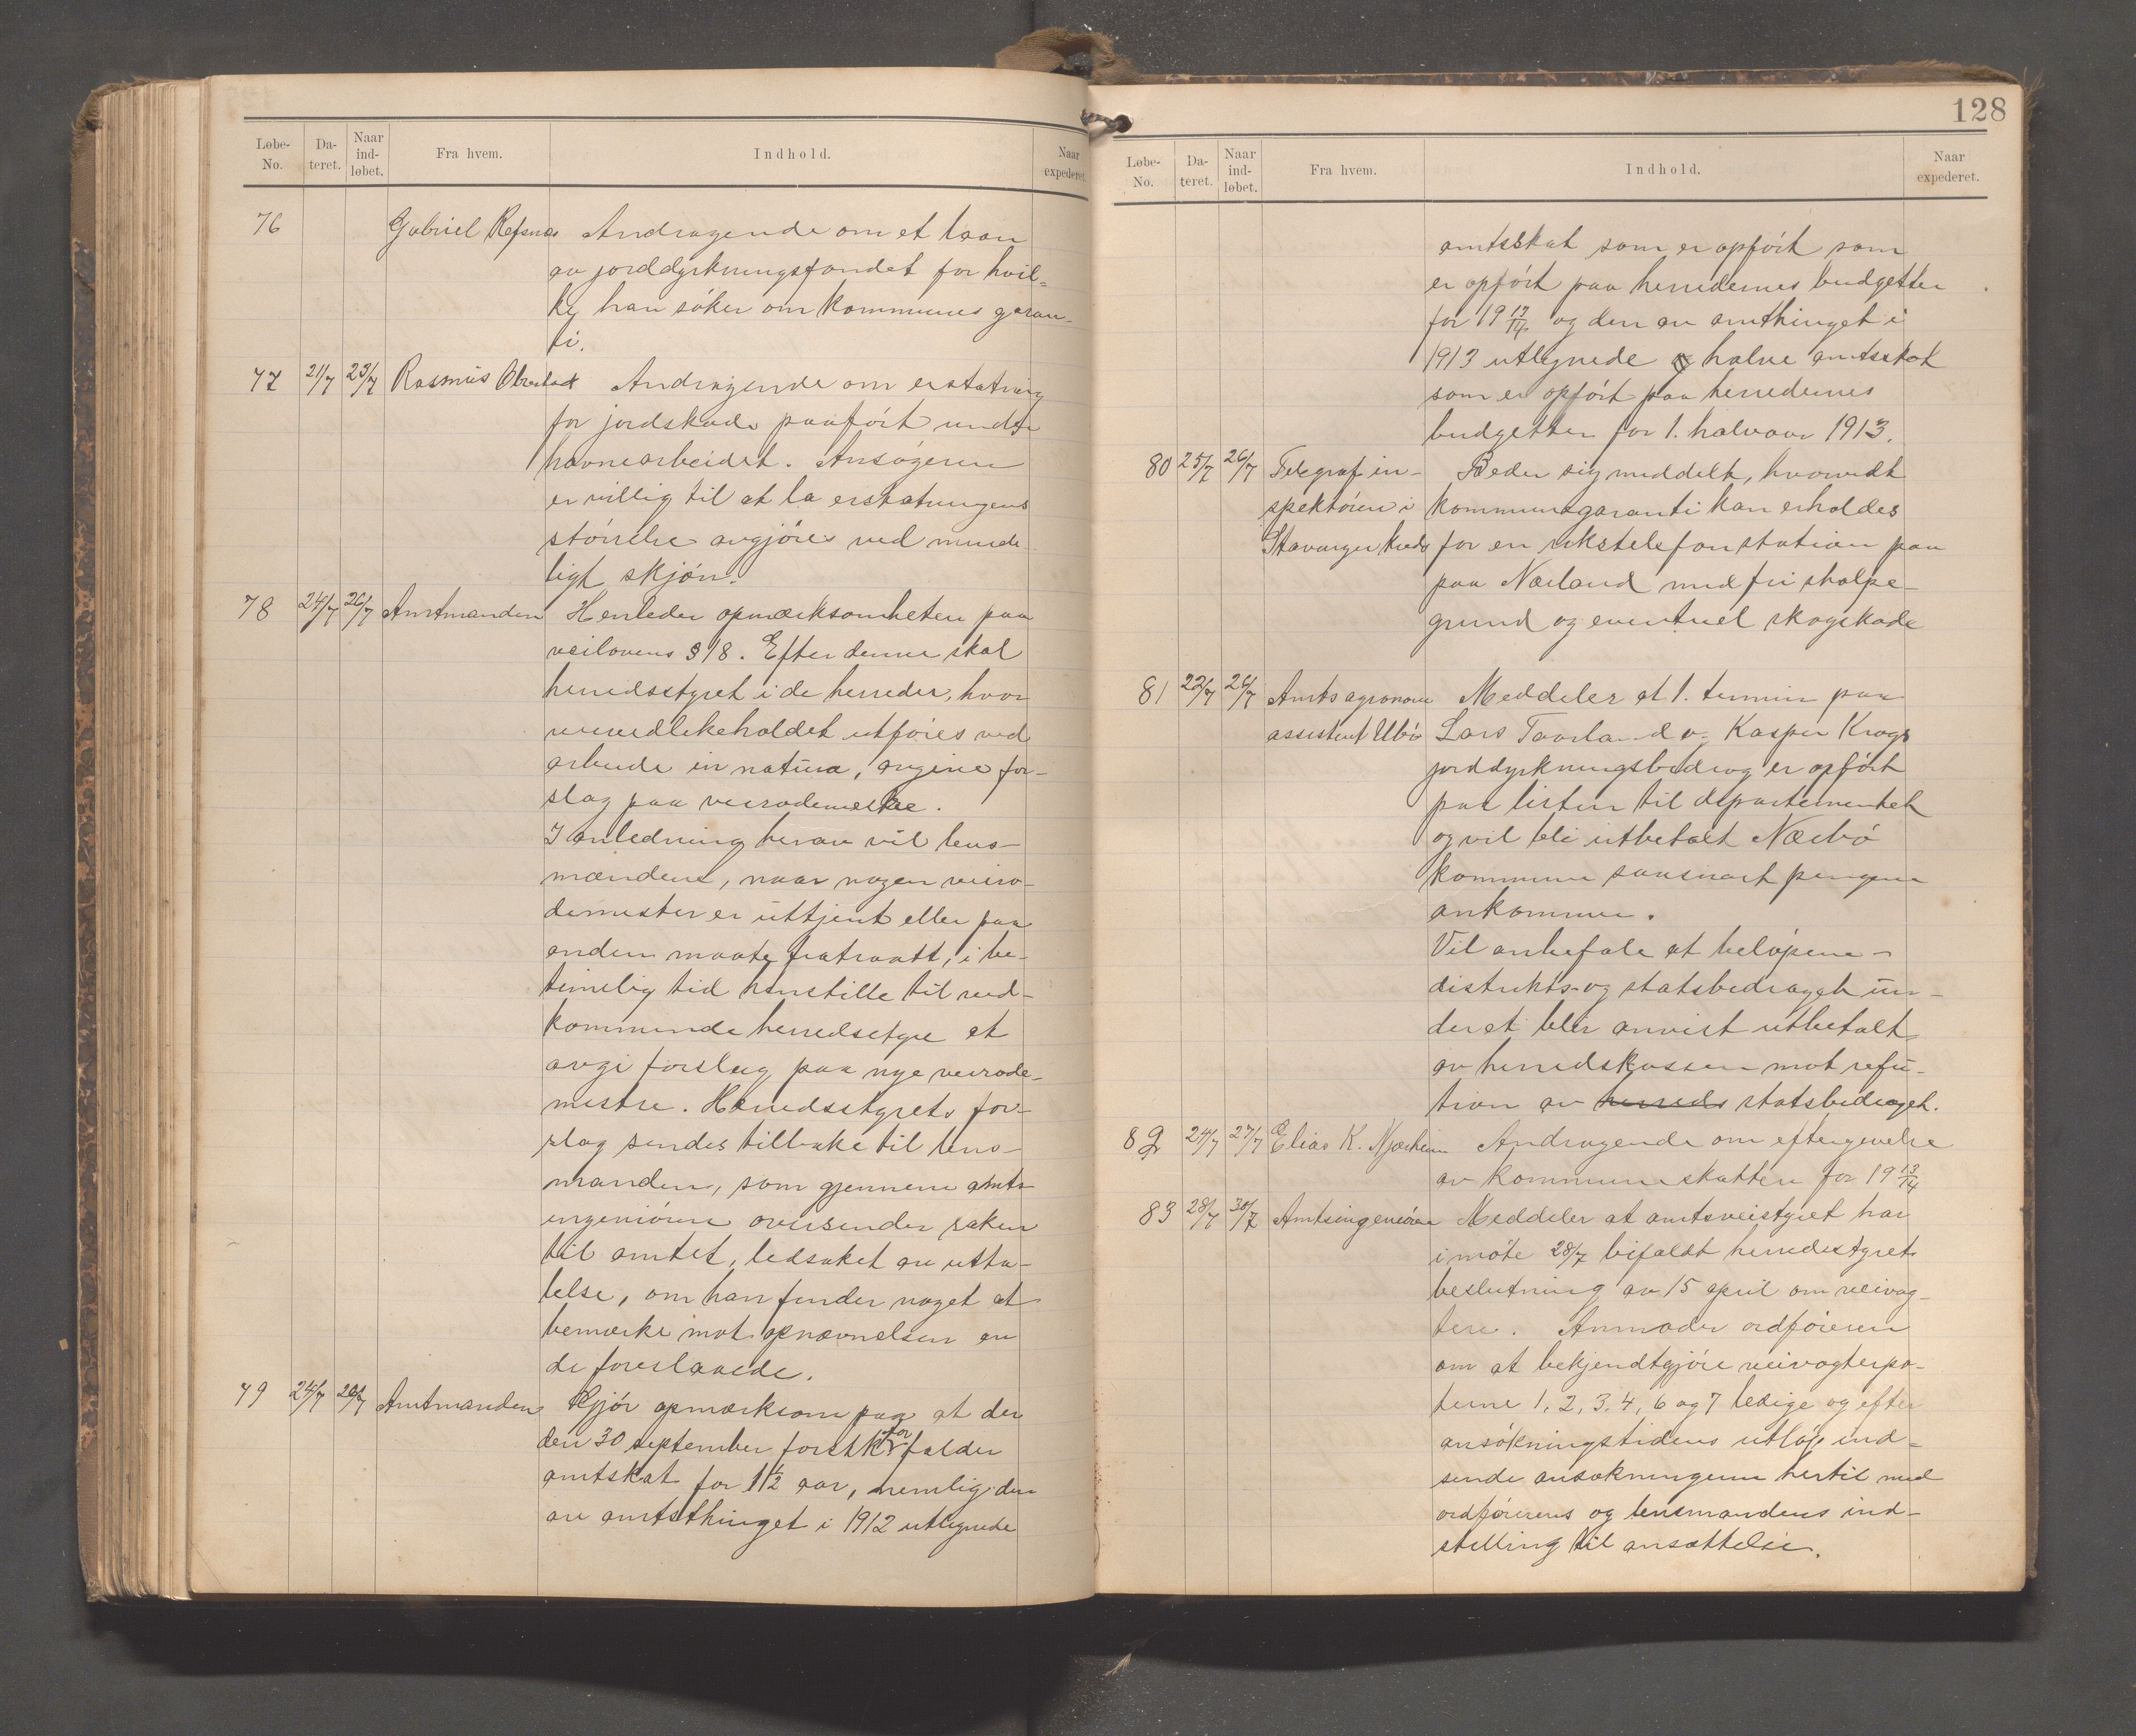 Løbe-No. Da-teret. Naar ind-løbet. Fra hvem. Indhold. Naar expederet.
76 Gabriel Refsnes Andragende om et laan
av jorddyrkningsfondet for hvil-
ke han søker om kommunes garan-
ti.
77 21/7 23/7 Rasmus Obrestad Andragende om erstatning
for jordskade paaført under
havnearbeidet. Ansøgeren
er villig til at la erstatningens
størrelse avgjøres ved minde-
ligt skjøn.
78 24/7 26/7 Amtmanden Henleder opmærksomheten paa
veilovens § 18. Efter denne skal
herredsstyret i de herreder, hvor
veivedlikeholdet utføres ved
arbeide in natura, avgive for-
slag paa veirodemestre.
I anledning herav vil lens-
mændene, naar nogen veiro-
demester er uttjent eller paa
anden maate fratraatt, i be-
timelig tid henstille til ved-
kommende herredsstyre at
avgi forslag paa nye veirode-
mestre. Herredsstyrets for-
slag sendes tilbake til lens-
manden, som gjennem amts-
ingeniøren oversender saken
til amtet, ledsaket av utta-
lelse, om han finder noget at
bemærke mot opnævnelsen av
de foreslaaede.
79 24/7 26/7 Amtmanden Gjør opmærksom paa at der
den 30 september førstk. forfalder
amtskat for 1½ aar, nemlig den
av amtsthinget i 1912 utlignede
128
Løbe-No. Da-teret. Naar ind-løbet. Fra hvem. Indhold. Naar expederet.
amtsskat som er opført som
er opført paa herredernes budgetter
for 19 13/14 og den av amthinget i
1913 utlignede halve amtsskat
som er opført paa herredernes
budgetter for 1. halvaar 1913.
80 25/7 26/7 Telegrafin- Beder sig meddelt, hvorvidt
spektøren i kommunegaranti kan erholdes
Stavanger kreds for en rikstelefonstation paa
paa Nærland med fri stolpe-
grund og eventuel skogskade
81 22/7 26/7 Amtsagronom Meddeler at 1. termin paa
assistent Ubø Lars Taarland og Kasper Krogs
jorddyrkningsbidrag er opført
paa listen til departementet
og vil bli utbetalt Nærbø
kommune saasnart pengene
ankommer.
Vil anbefale at beløpene -
distrikts- og statsbidraget un-
der et blir anvist utbetalt
av herredskassen mot refu-
tion av herreds statsbidraget.
82 24/7 27/7 Elias K. Njærheim Andragende om eftergivelse
av kommuneskatten for 19 13/14
83 28/7 30/7 Amtsingeniøren Meddeler at amtsveistyret har
i møte 28/7 bifaldt herredsstyrets
beslutning av 15 april om veivog-
tere. Anmoder ordføreren
om at bekjendtgjøre veivogterpo-
sterne 1, 2, 3, 4, 6 og 7 ledige og efter
ansøkningstidens utløp ind-
sende ansøkningerne hertil med
ordførerens og lensmandens ind-
stilling til ansættelse.